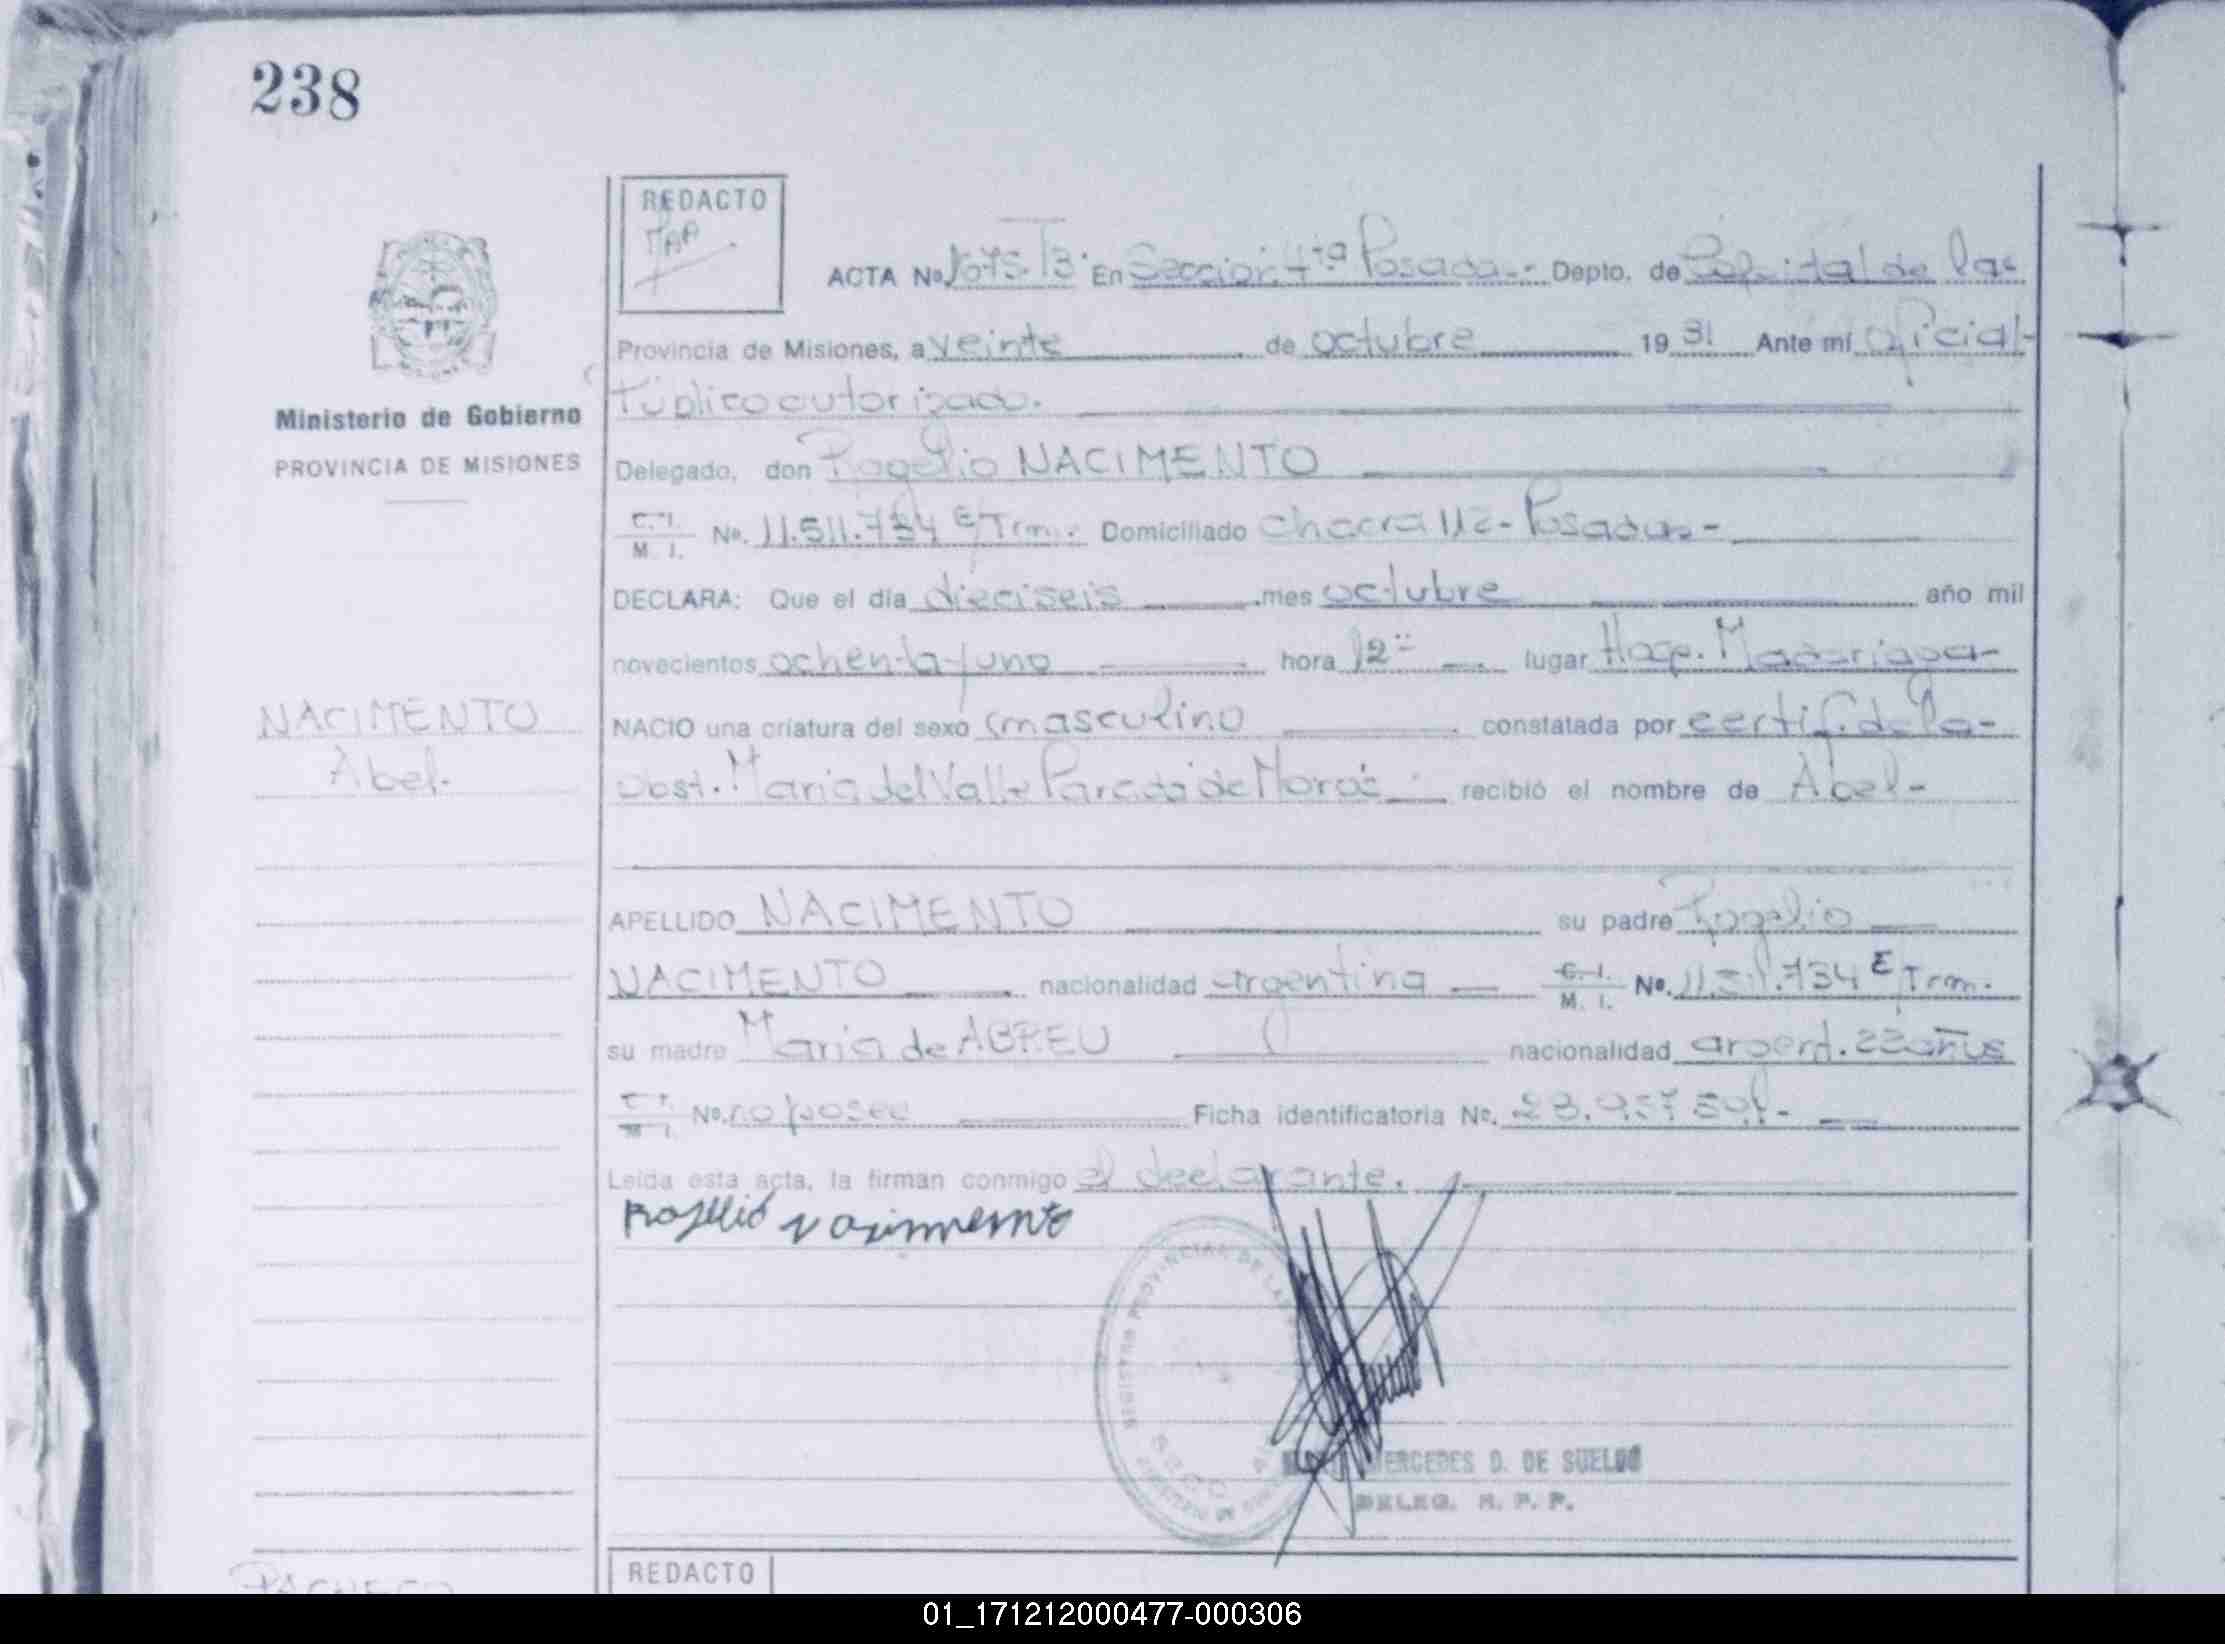 238
REDACTO
ACTA No. 1675 T3. En Sección 4ta Posadas.- Depto. de Capital de las
Provincia de Misiones, a veinte de octubre 19 81 Ante mí Oficial-
Público autorizado.
Ministerio de Gobierno
PROVINCIA DE MISIONES
Delegado, don Rogelio NACIMENTO
C. I. M. I. No. 11.511.734 E Trm. Domiciliado Chacra 112- Posadas-
DECLARA: Que el día dieciseis mes octubre año mil
novecientos ochenta y uno hora 12 lugar Hosp. Madariaga-
NACIO una criatura del sexo masculino constatada por certif. de la-
obst. Maria del Valle Pareda de Moras recibió el nombre de Abel-
NACIMENTO
Abel.
APELLIDO NACIMENTO su padre Rogelio
NACIMENTO nacionalidad argentina C. I. M. I. No. 11.511.734 E Trm.
su madre Maria de ABREU nacionalidad argent. 22 años
C. I. M. I. No. no posee Ficha identificatoria No.
Leída esta acta, la firman conmigo el declarante.
Rojelio nacimento
REGISTRO PROVINCIAL DE LAS
MERCEDES D. DE SUELDO
DELEG. R. P. P.
PACHECO
REDACTO
01_171212000477-000306